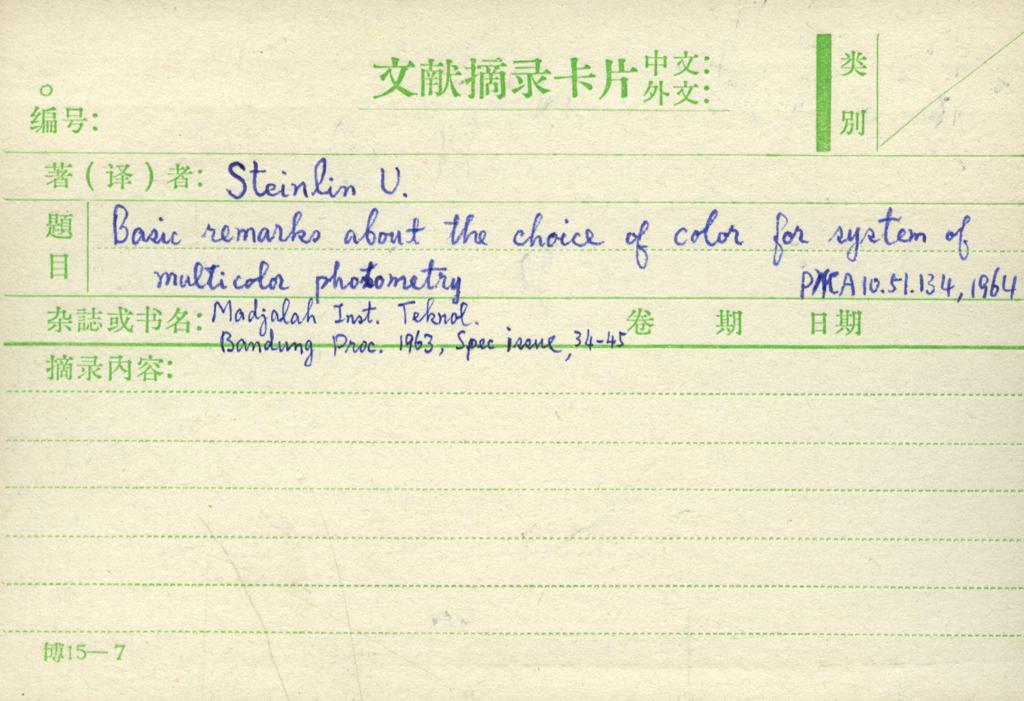 文献摘录卡片 中文:
外文:
类
别
编号:
著(译)者: Steinlin U.
题目 Basic remarks about the choice of color for system of
multicolor photometry
10.51.134, 1964
杂誌或书名: Madjalah Inst. Teknol. 卷 期 日期
Bandung Proc. 1963, Spec issue, 34-45
摘录内容:
博15—7